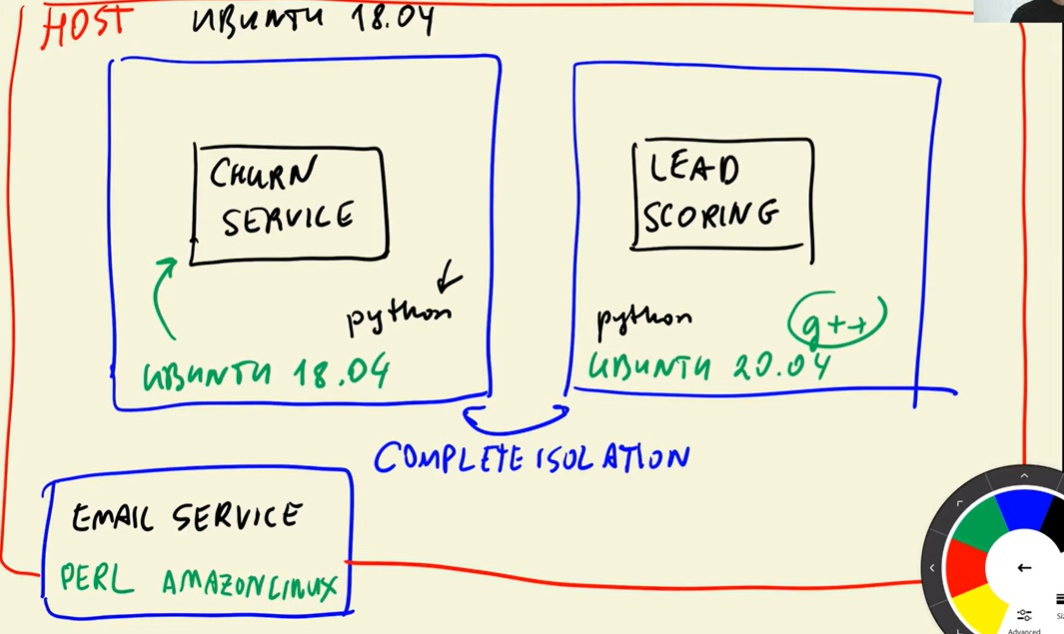 HOST UBUNTU 18.04
CHURN
SERVICE
python
UBUNTU 18.04
LEAD
SCORING
python
g++
UBUNTU 20.04
COMPLETE ISOLATION
EMAIL SERVICE
PERL AMAZON LINUX
Advanced